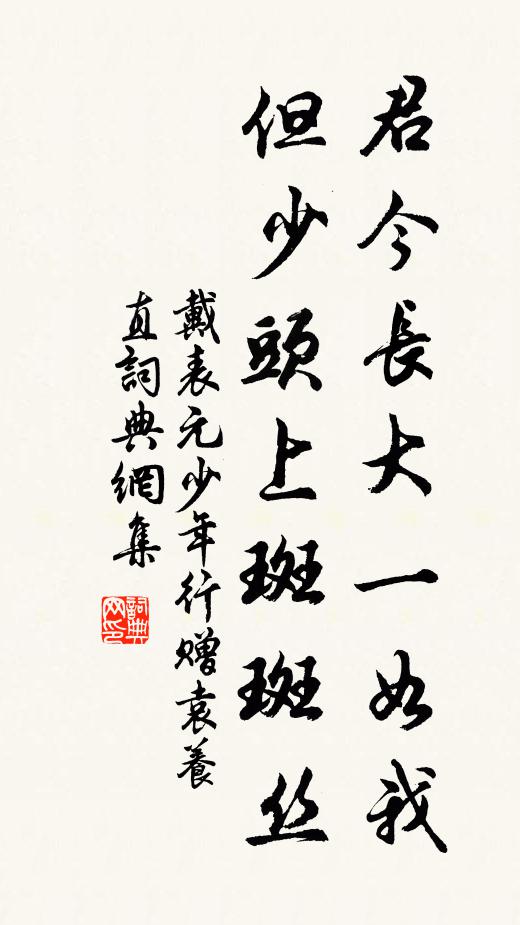 君今長大一如我
但少頭上斑斑丝
戴表元少年行赠袁養
直詞典網集
詞典
网印